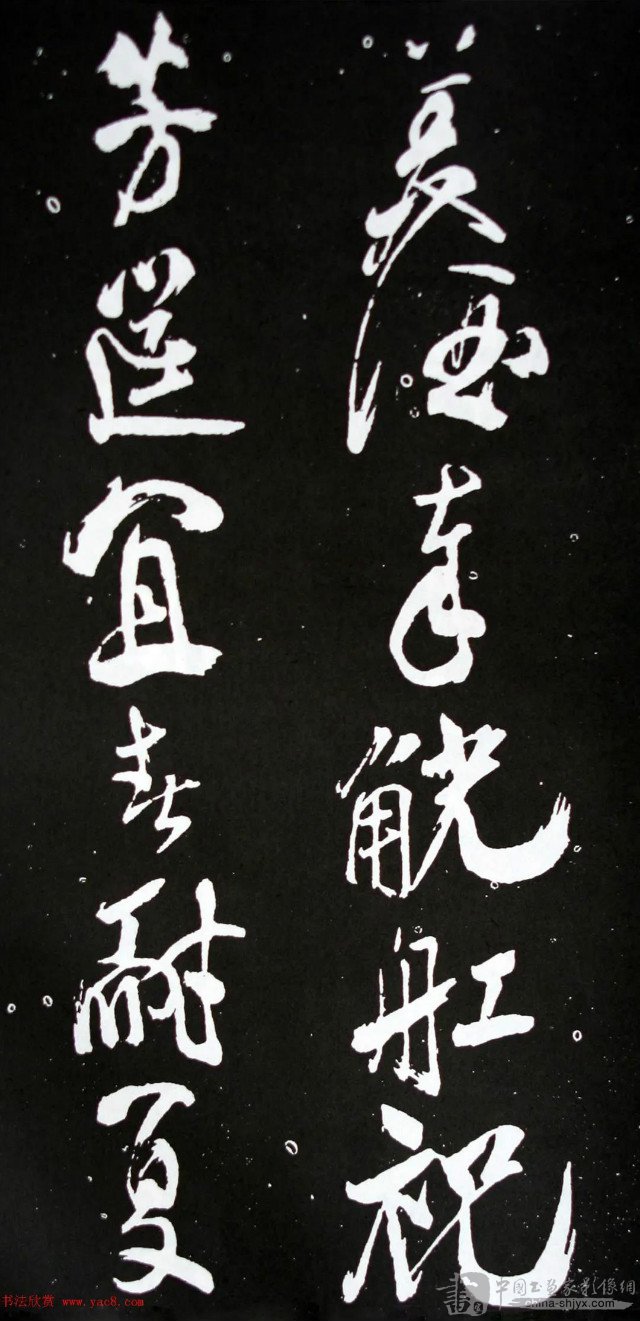 美酒奉觥舡祝
芳筵宜春耐夏
书法欣赏 www.yac8.com
中國书画家影像網
china-shjyx.com